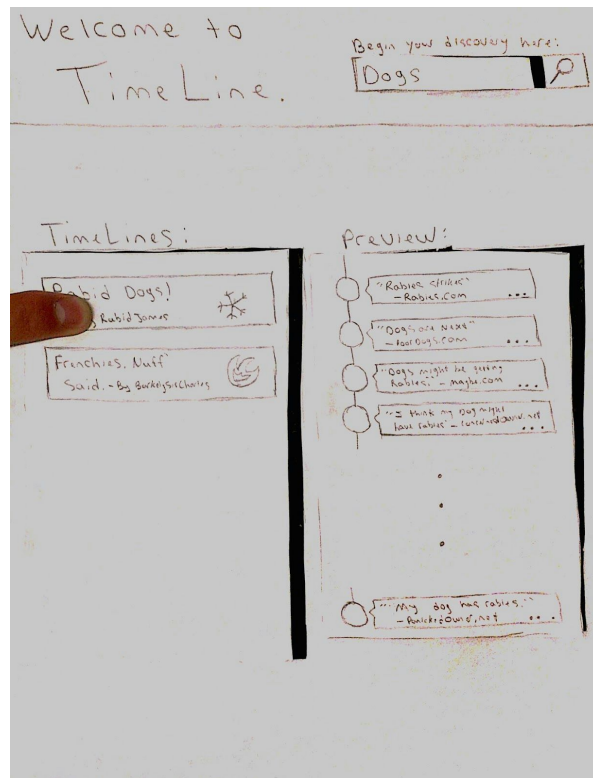 Welcome to
TimeLine.
Begin your discovery here:
Dogs
TimeLines:
Rabid Dogs!
Rabid James
Frenchies. Nuff
Said. - By BarkelySirCharles
Preview:
"Rabies strikes"
- Rabies.com
...
"Dogs are Next"
- PoorDogs.com
...
"Dogs might be getting
Rabies." - maybe.com
...
"I think my Dog might
have rabies" - concernedOwner.net
...
"My dog has rabies."
- PanickedOwner.net
...